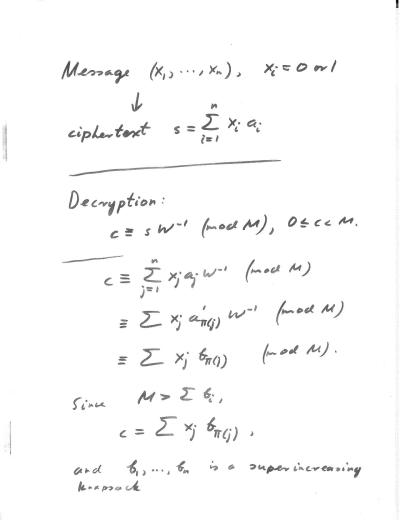 Message (x₁, ..., xₙ), xᵢ = 0 or 1
↓
ciphertext s = ∑ᵢ₌₁ⁿ xᵢ aᵢ
Decryption:
c ≡ s W⁻¹ (mod M), 0 ≤ c < M.
c ≡ ∑ⱼ₌₁ⁿ xⱼ aⱼ W⁻¹ (mod M)
≡ ∑ xⱼ a'_π(j) W⁻¹ (mod M)
≡ ∑ xⱼ b_π(j) (mod M).
Since M > ∑ bᵢ,
c = ∑ xⱼ b_π(j),
and b₁, ..., bₙ is a superincreasing
knapsack